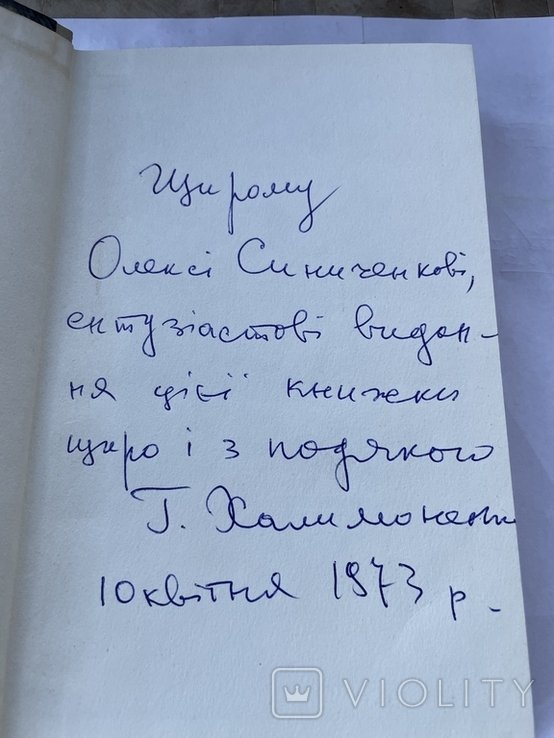 Щирому
Олексі Синиченкові,
ентузіастові видан-
ня цієї книжки
щиро і з подякою
Г. Халимоненко
10 квітня 1973 р.
VIOLITY